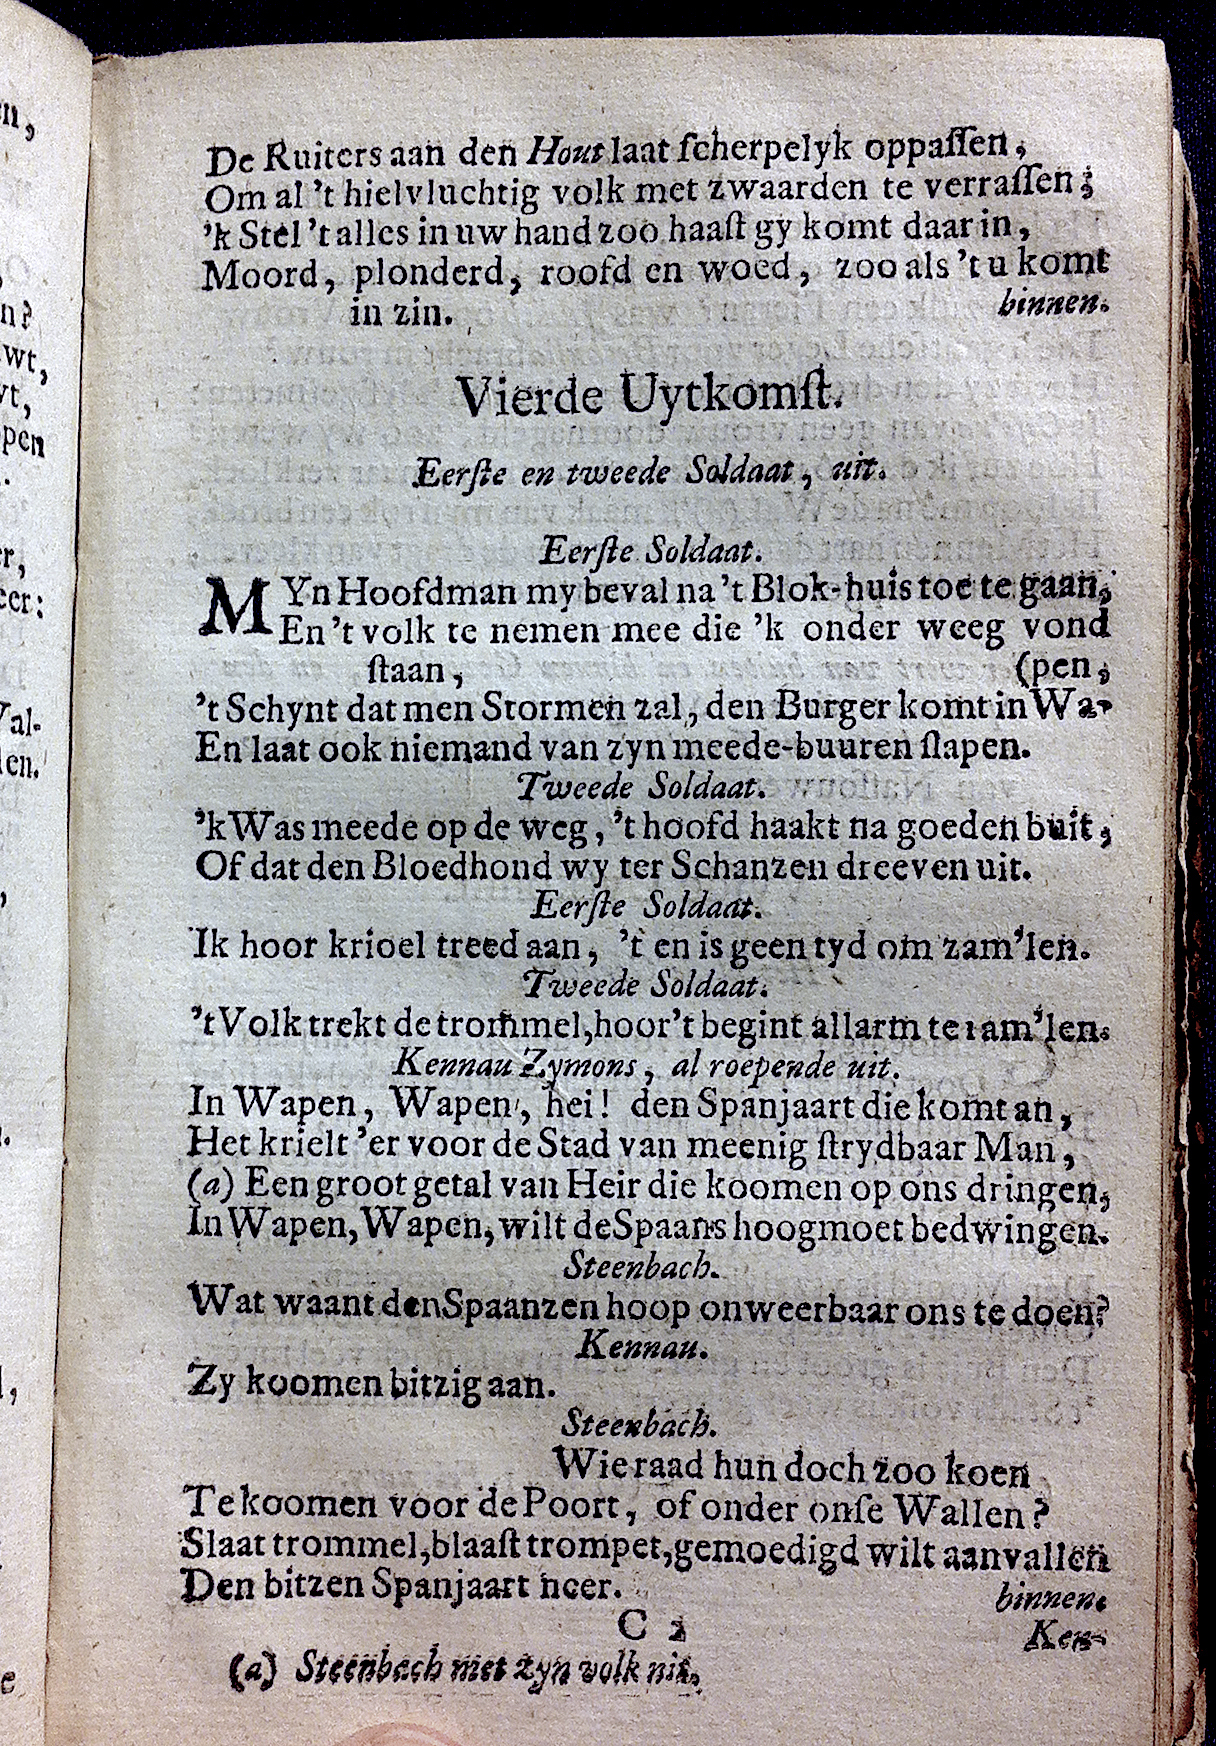 De Ruiters aan den Hout laat ſcherpelyk oppaſſen,
Om al 't hielvluchtig volk met zwaarden te verraſſen;
'k Stel 't alles in uw hand zoo haaſt gy komt daar in,
Moord, plonderd, roofd en woed, zoo als 't u komt
in zin. binnen.
Vierde Uytkomſt.
Eerſte en tweede Soldaat, uit.
Eerſte Soldaat.
MYn Hoofdman my beval na 't Blok-huis toe te gaan,
En 't volk te nemen mee die 'k onder weeg vond
ſtaan, (pen,
't Schynt dat men Stormen zal, den Burger komt in Wa-
En laat ook niemand van zyn meede-buuren ſlapen.
Tweede Soldaat.
'k Was meede op de weg, 't hoofd haakt na goeden buit,
Of dat den Bloedhond wy ter Schanzen dreeven uit.
Eerſte Soldaat.
Ik hoor krioel treed aan, 't en is geen tyd om zam'len.
Tweede Soldaat.
't Volk trekt de trommel, hoor 't begint allarm te ram'len.
Kennau Zymons, al roepende uit.
In Wapen, Wapen, hei! den Spanjaart die komt an,
Het krielt 'er voor de Stad van meenig ſtrydbaar Man,
(a) Een groot getal van Heir die koomen op ons dringen,
In Wapen, Wapen, wilt de Spaans hoogmoet bedwingen.
Steenbach.
Wat waant den Spaanzen hoop onweerbaar ons te doen?
Kennau.
Zy koomen bitzig aan.
Steenbach.
Wie raad hun doch zoo koen
Te koomen voor de Poort, of onder onſe Wallen?
Slaat trommel, blaaſt trompet, gemoedigd wilt aanvallen
Den bitzen Spanjaart neer. binnen.
C 2 Ken-
(a) Steenbach met zyn volk uit.